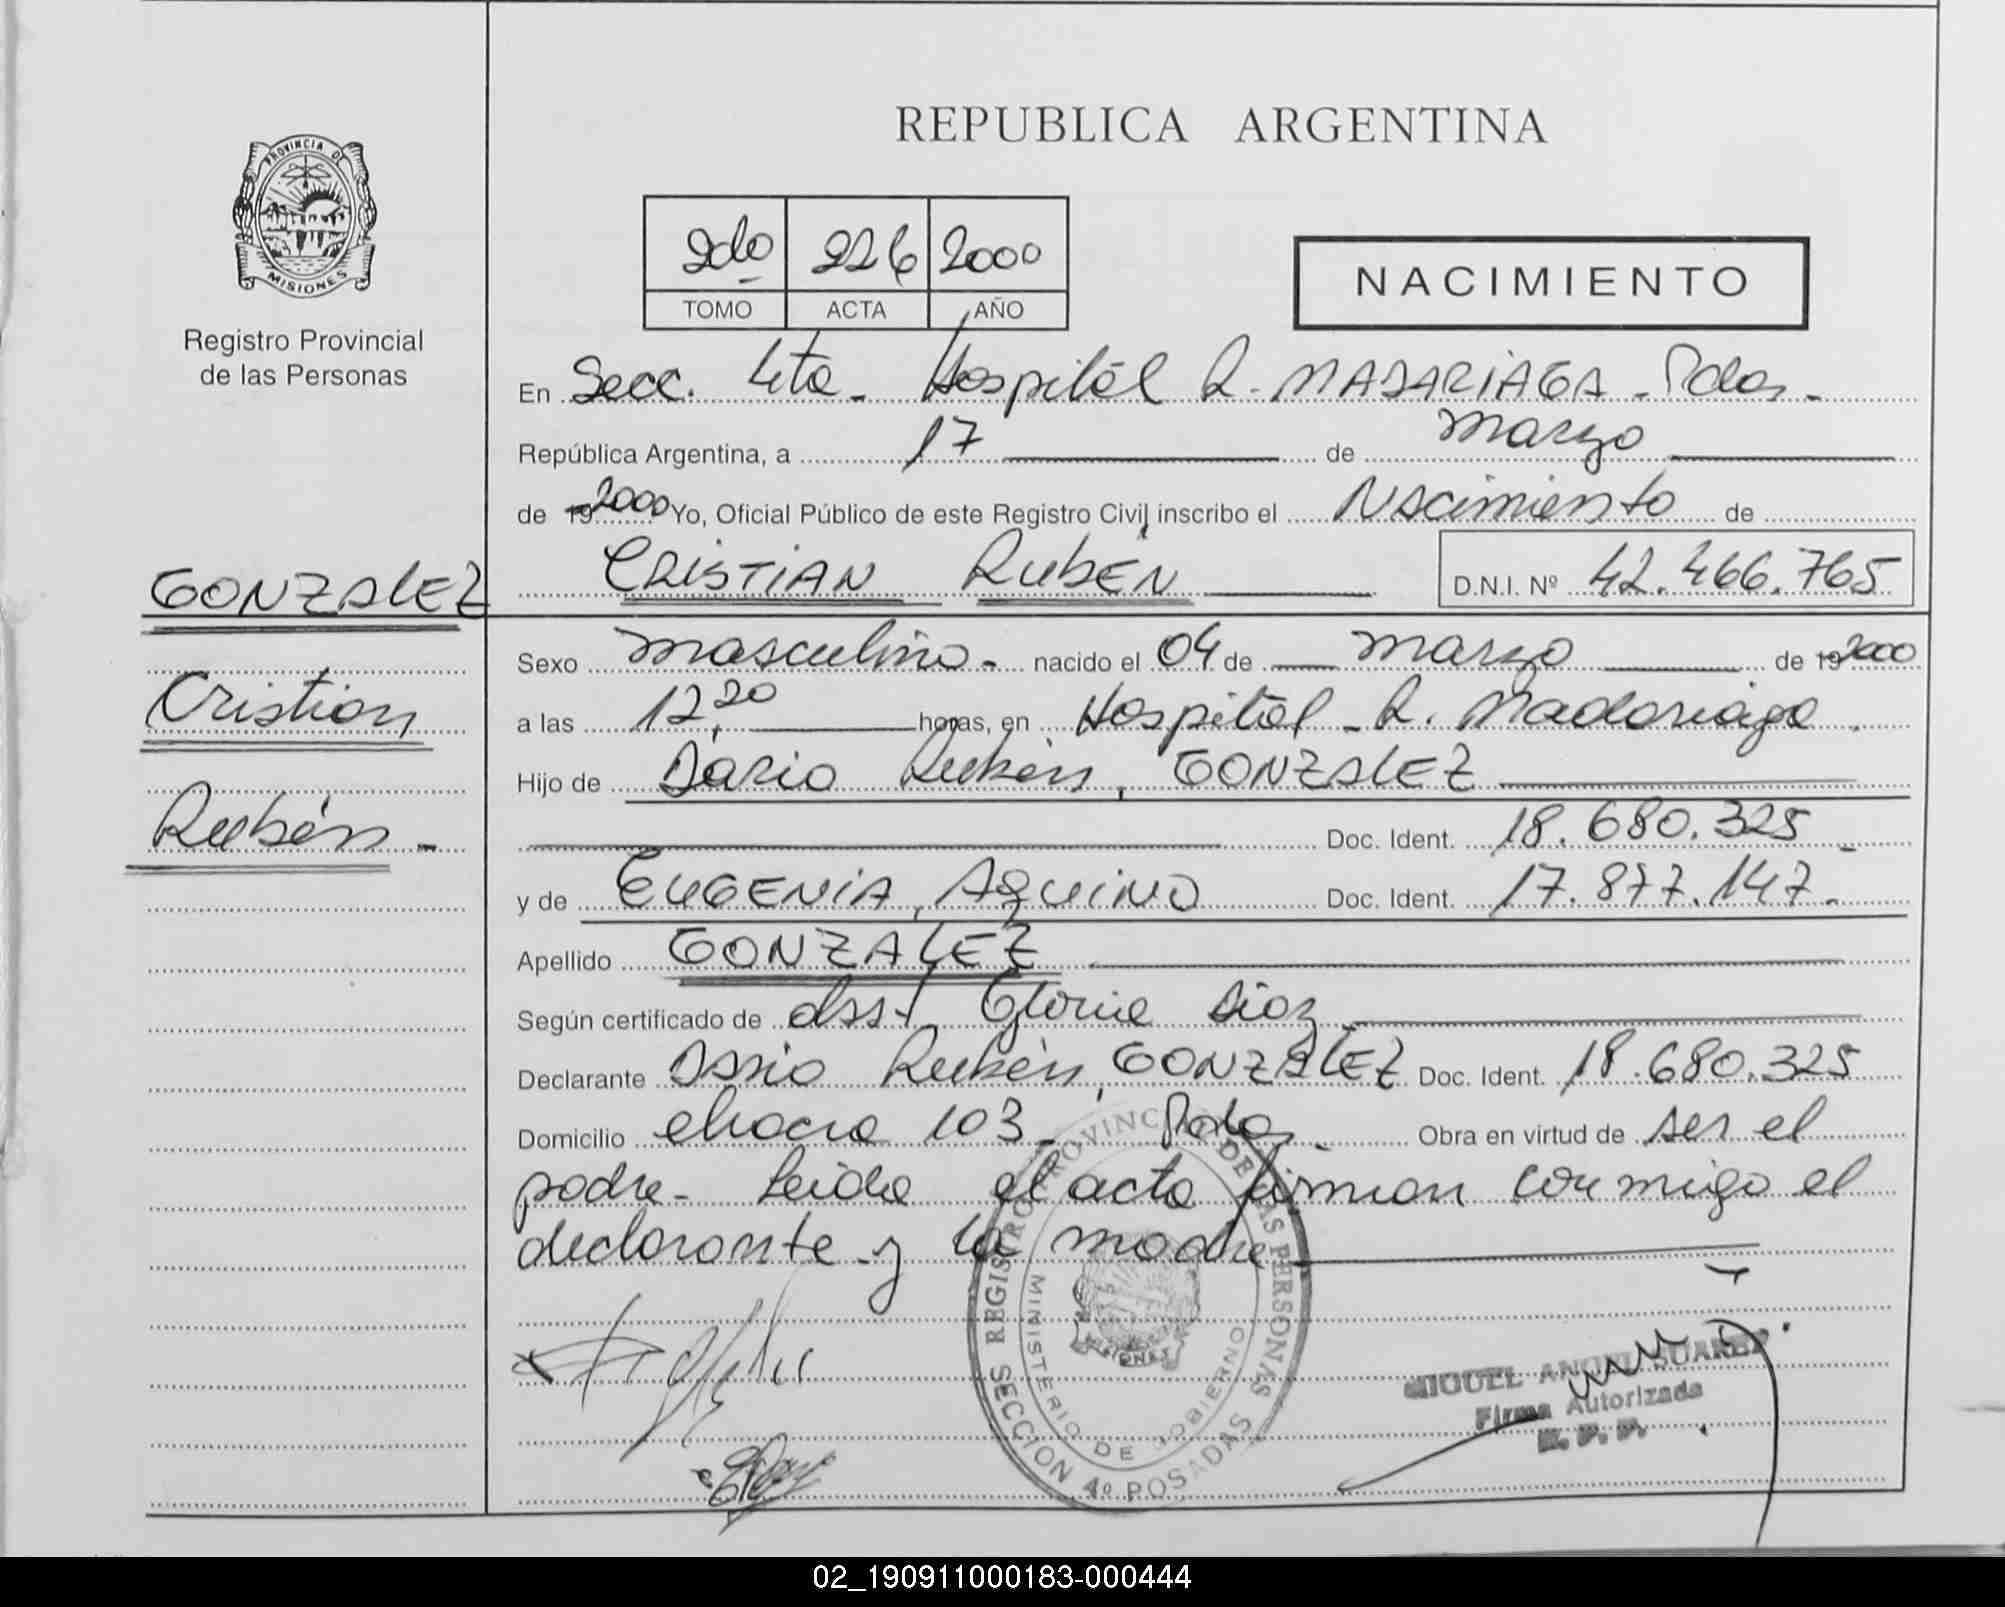 REPUBLICA ARGENTINA
PROVINCIA DE
MISIONES
Registro Provincial
de las Personas
2do 226 2000
TOMO ACTA AÑO
NACIMIENTO
En Secc. 4ta - Hospitál R. MADARIAGA - Pdas.-
República Argentina, a 17 de Marzo
de 19 2000 Yo, Oficial Público de este Registro Civil inscribo el Nacimiento de
CRISTIAN RUBEN D.N.I. Nº 42.466.765
GONZALEZ
Cristian
Rubén -
Sexo Masculino.- nacido el 04 de Marzo de 19 2000
a las 12,20 horas, en Hospitál - R. Madariaga.
Hijo de Dario Rubén, GONZALEZ
Doc. Ident. 18.680.325 -
y de EUGENIA, AQUINO Doc. Ident. 17.877.147.-
Apellido GONZALEZ
Según certificado de Gloria Díaz
Declarante Dario Rubén, GONZALEZ Doc. Ident. 18.680.325
Domicilio chacra 103 - Pdas. Obra en virtud de ser el
padre - Leida el acta firman conmigo el
declarante y la madre
REGISTRO PROVINCIAL DE LAS PERSONAS
MINISTERIO DE GOBIERNO
MISIONES
SECCION 4º POSADAS
MIGUEL ANGEL SUAREZ
Firma Autorizada
R. P. P.
02_190911000183-000444